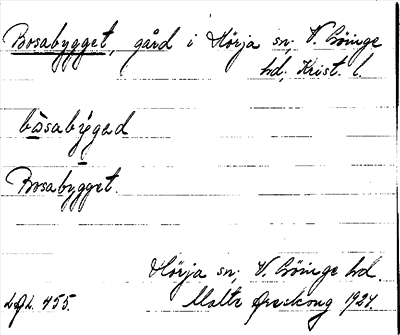 Bosabygget, gård i Hörja sn; V. Göinge
hd; Krist. l.
bosabygad
Bosabygget.
Hörja sn; V. Göinge hd.
Malte 1924
455.